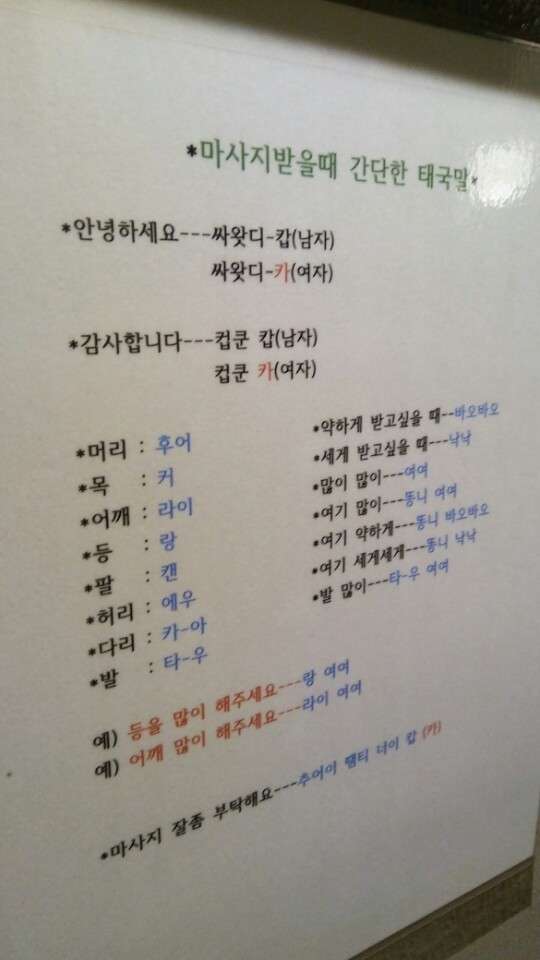 *마사지받을때 간단한 태국말*
*안녕하세요---싸왓디-캅(남자)
싸왓디-카(여자)
*감사합니다---컵쿤 캅(남자)
컵쿤 카(여자)
*머리 : 후어
*목 : 커
*어깨 : 라이
*등 : 랑
*팔 : 캔
*허리 : 에우
*다리 : 카-아
*발 : 타-우
*약하게 받고싶을 때--바오바오
*세게 받고싶을 때---낙낙
*많이 많이---여여
*여기 많이---똥니 여여
*여기 약하게---똥니 바오바오
*여기 세게세게---똥니 낙낙
*발 많이---타-우 여여
예) 등을 많이 해주세요---랑 여여
예) 어깨 많이 해주세요---라이 여여
*마사지 잘좀 부탁해요---추어이 탬티 너이 캅 (카)